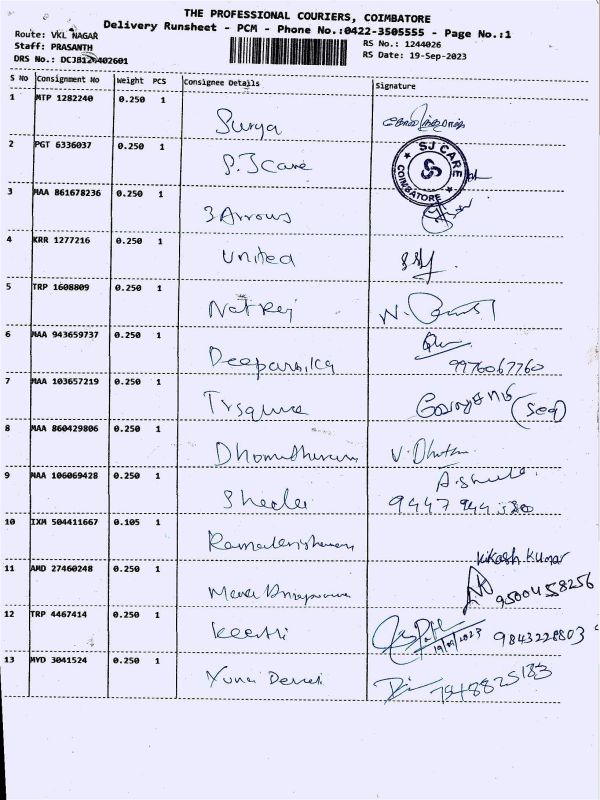 THE PROFESSIONAL COURIERS, COIMBATORE
Delivery Runsheet - PCM - Phone No.:0422-3505555 - Page No.:1
Route: VKL NAGAR
Staff: PRASANTH
RS No.: 1244026
RS Date: 19-Sep-2023
DRS No.: DCJB120402601
S No Consignment No Weight PCS Consignee Details Signature
1 MTP 1282240 0.250 1
Surya
2 PGT 6336037 0.250 1
S.J Care
SJ CARE
COIMBATORE
3 MAA 861678236 0.250 1
3 Arrows
4 KRR 1277216 0.250 1
United
5 TRP 1608809 0.250 1
Natraj
6 MAA 943659737 0.250 1
9976067760
7 MAA 103657219 0.250 1
Trsquare
8 MAA 860429806 0.250 1
V. 
9 MAA 106069428 0.250 1
Sheela
9447 944
10 IXM 504411667 0.105 1
Vikash Kumar
11 AMD 27460248 0.250 1
9500458256
12 TRP 4467414 0.250 1
Keerthi
9843228803
13 MYD 3041524 0.250 1